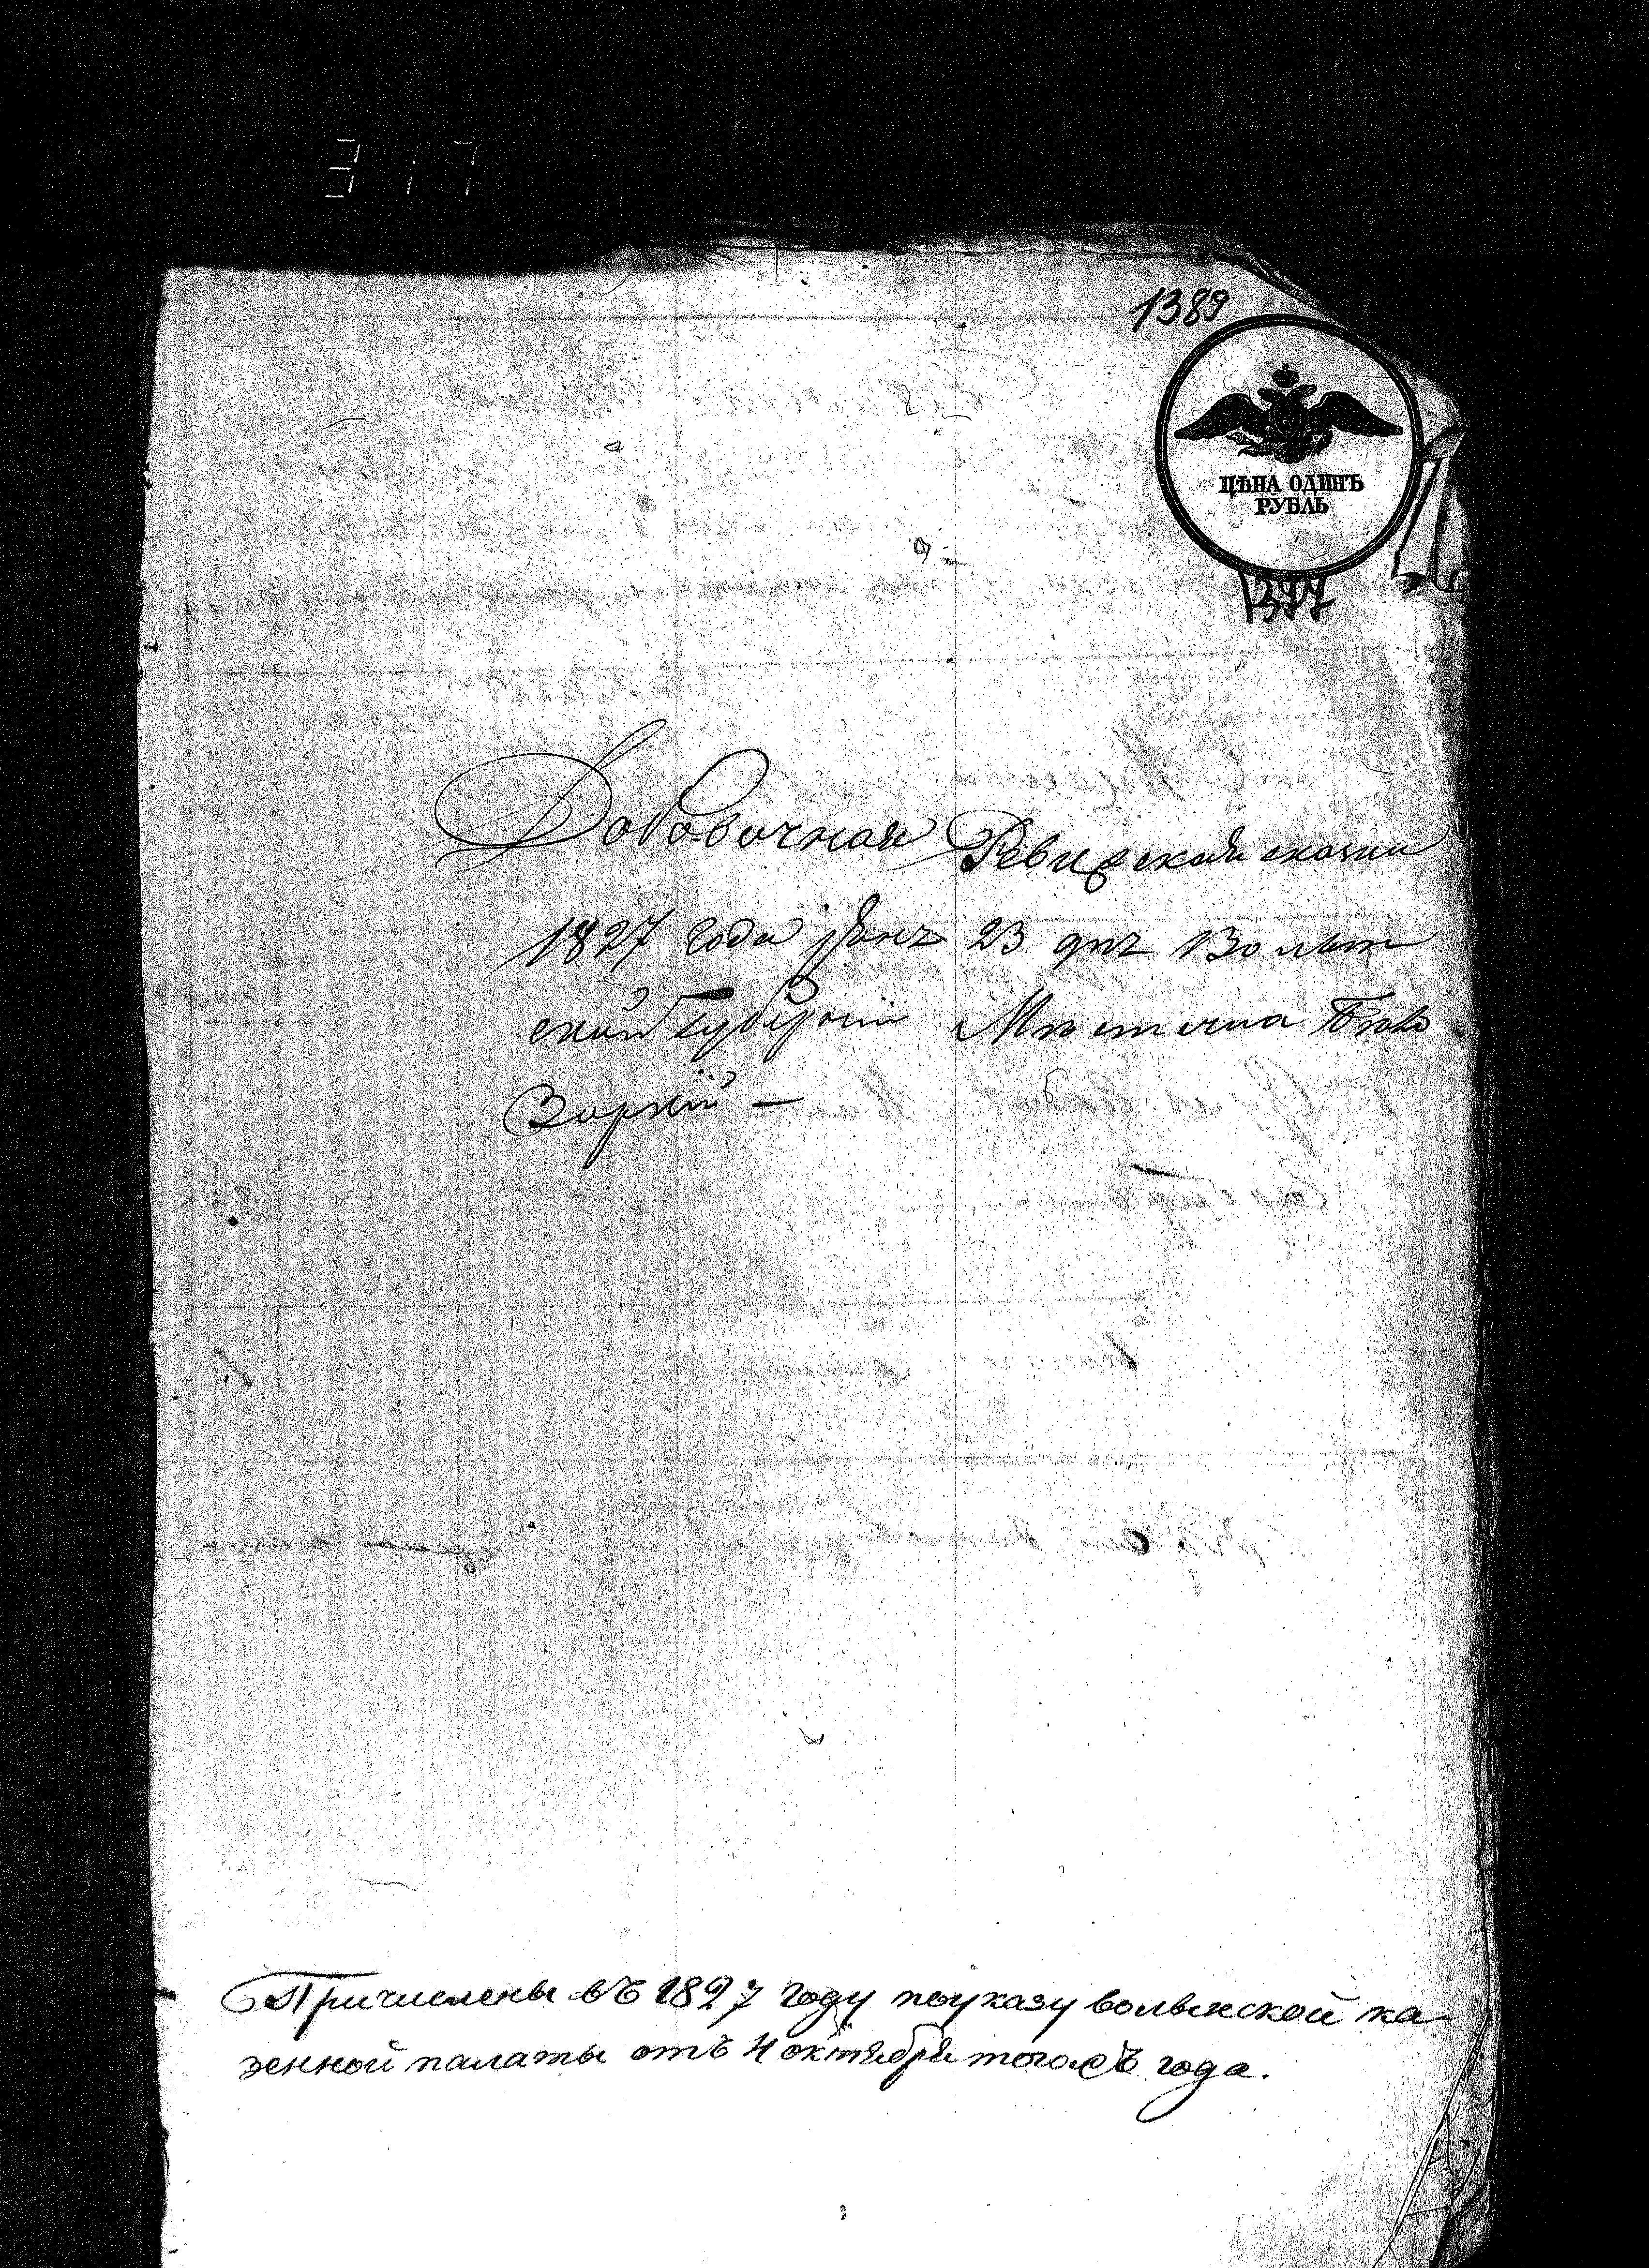 317
1389
ЦѢНА ОДИНЪ
РУБЛЬ
1397
Добовочная Ревизская сказка
1827 года 23 дня Волын
ской Губерніи Мѣстечка Бѣло
Зоркій —
Причислены въ 1827 году поуказу волынской ка
зенной палаты отъ 4 октября тогожъ года.